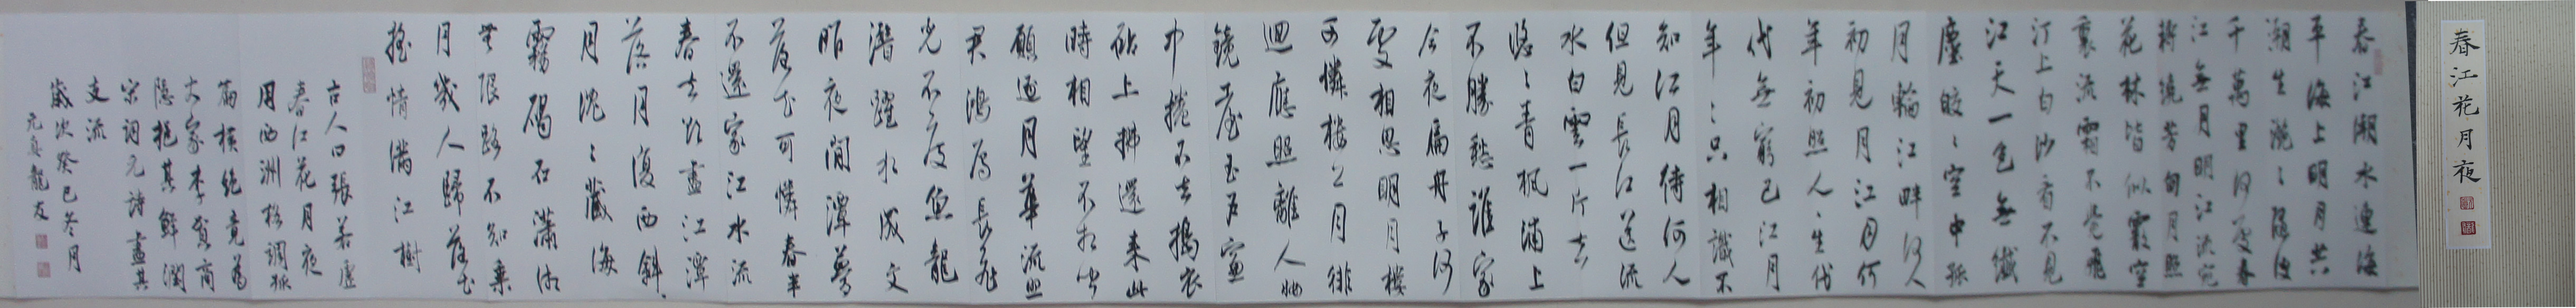 春江花月夜
春江潮水連海
平海上明月共
潮生灔〻隨波
千萬里何處春
江無月明江流宛
轉繞芳甸月照
花林皆似霰空
裏流霜不覺飛
汀上白沙看不見
江天一色無纖
塵皎〻空中孤
月輪江畔何人
初見月江月何
年初照人〻生代
代無窮已江月
年〻只相識不
知江月待何人
但見長江送流
水白雲一片去
悠〻青楓浦上
不勝愁誰家
今夜扁舟子何
處相思明月樓
可憐樓上月徘
迴應照離人妝
鏡臺玉戶簾
中捲不去擣衣
砧上拂還來此
時相望不相聞
願逐月華流照
君鴻雁長飛
光不度魚龍
潛躍水成文
昨夜閒潭夢
落花可憐春半
不還家江水流
春去欲盡江潭
落月復西斜
月沈〻藏海
霧碣石瀟湘
無限路不知乘
月幾人歸落花
搖情滿江樹
古人曰張若虛
春江花月夜
用西洲格調孤
篇橫絕竟為
大家李賀商
隱挹其鮮潤
宋詞元詩盡其
支流
歲次癸巳冬月
龍友